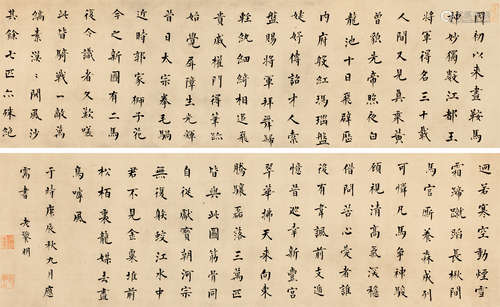 國初以來畫鞍馬
神妙獨數江都王
將軍得名三十載
人間又見真乘黃
曾貌先帝照夜白
龍池十日飛霹靂
內府殷紅瑪瑙盤
婕妤傳詔才人索
盤賜將軍拜舞歸
輕紈細綺相追飛
貴戚權門得筆跡
始覺屏障生光輝
昔日太宗拳毛騧
近時郭家獅子花
今之新圖有二馬
復令識者久歎嗟
此皆騎戰一敵萬
縞素漠漠開風沙
其餘七匹亦殊絕
迥若寒空動煙雪
霜蹄蹴踏長楸間
馬官廝養森成列
可憐九馬爭神駿
顧視清高氣深穩
借問苦心愛者誰
後有韋諷前支遁
憶昔巡幸新豐宮
翠華拂天來向東
騰驤磊落三萬匹
皆與此圖筋骨同
自從獻寶朝河宗
無復射蛟江水中
君不見金粟堆前
松柏裏龍媒去盡
鳥啼風
于時庚辰秋九月應
需書